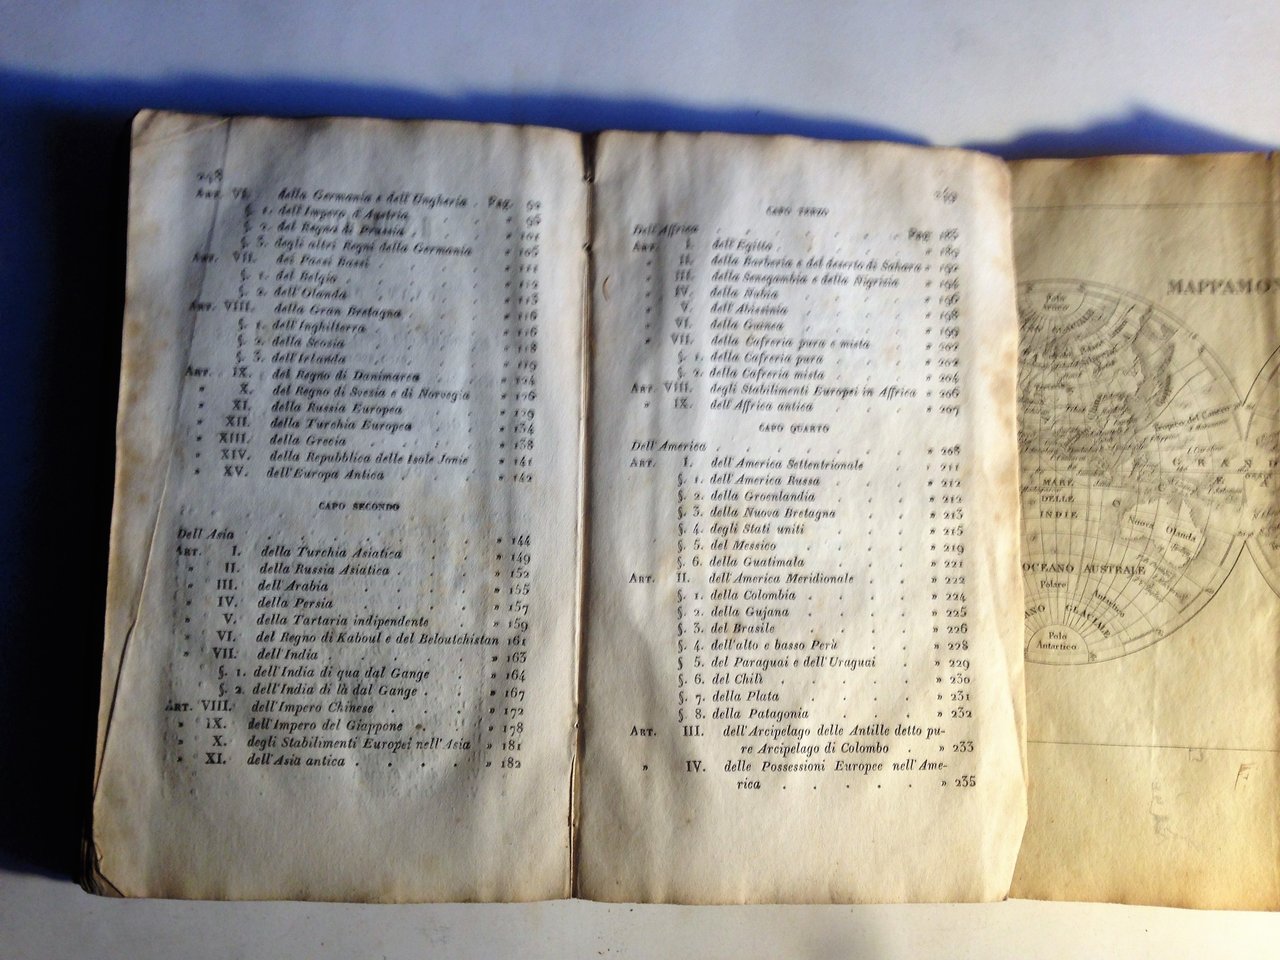 248
ART. VI. della Germania e dell'Ungheria . Pag. 92
§ 1. dell'Impero d'Austria . . . » 96
§ 2. del Regno di Prussia . . . » 101
§ 3. degli altri Regni della Germania » 105
ART. VII. dei Paesi Bassi . . . » 111
§ 1. del Belgio . . . » 111
§ 2. dell'Olanda . . . » 113
ART. VIII. della Gran Bretagna . . . » 116
§ 1. dell'Inghilterra . . . » 116
§ 2. della Scozia . . . » 118
§ 3. dell'Irlanda . . . » 119
ART. IX. del Regno di Danimarca . . . » 124
» X. del Regno di Svezia e di Norvegia » 126
» XI. della Russia Europea . . . » 129
» XII. della Turchia Europea . . . » 134
» XIII. della Grecia . . . » 138
» XIV. della Repubblica delle Isole Jonie » 141
» XV. dell'Europa Antica . . . » 142
CAPO SECONDO
Dell'Asia . . . » 144
ART. I. della Turchia Asiatica . . . » 149
» II. della Russia Asiatica . . . » 152
» III. dell'Arabia . . . » 155
» IV. della Persia . . . » 157
» V. della Tartaria indipendente . . » 159
» VI. del Regno di Kaboul e del Beloutchistan 161
» VII. dell'India . . . » 163
§. 1. dell'India di qua dal Gange . . » 164
§. 2. dell'India di là dal Gange . . . » 167
ART. VIII. dell'Impero Chinese . . . » 172
» IX. dell'Impero del Giappone . . . » 178
» X. degli Stabilimenti Europei nell'Asia » 181
» XI. dell'Asia antica . . . » 182
249
CAPO TERZO
Dell'Affrica . . . Pag. 185
ART. I. dell'Egitto . . . » 189
» II. della Barberia e del deserto di Sahara » 192
» III. della Senegambia e della Nigrizia » 194
» IV. della Nubia . . . » 196
» V. dell'Abissinia . . . » 198
» VI. della Guinea . . . » 199
» VII. della Cafreria pura e mista . . . » 202
§ 1. della Cafreria pura . . . » 202
§ 2. della Cafreria mista . . . » 204
ART. VIII. degli Stabilimenti Europei in Affrica » 206
» IX. dell'Affrica antica . . . » 207
CAPO QUARTO
Dell'America . . . » 208
ART. I. dell'America Settentrionale . . . » 211
§. 1. dell'America Russa . . . » 212
§. 2. della Groenlandia . . . » 212
§. 3. della Nuova Bretagna . . . » 213
§. 4. degli Stati uniti . . . » 215
§. 5. del Messico . . . » 219
§. 6. della Guatimala . . . » 221
ART. II. dell'America Meridionale . . . » 222
§. 1. della Colombia . . . » 224
§. 2. della Gujana . . . » 225
§. 3. del Brasile . . . » 226
§. 4. dell'alto e basso Perù . . . » 228
§ 5. del Paraguai e dell'Uraguai . . » 229
§. 6. del Chilì . . . » 230
§. 7. della Plata . . . » 231
§. 8. della Patagonia . . . » 232
ART. III. dell'Arcipelago delle Antille detto pu-
re Arcipelago di Colombo . . » 233
» IV. delle Possessioni Europee nell'Ame-
rica . . . » 235
MAPPAMON
Polo
Artico
Tropico del Cancro
GRAND
MARE
DELLE
INDIE
Nuova Olanda
OCEANO AUSTRALE
Polare
Antartico
GLACIALE
Polo
Antartico